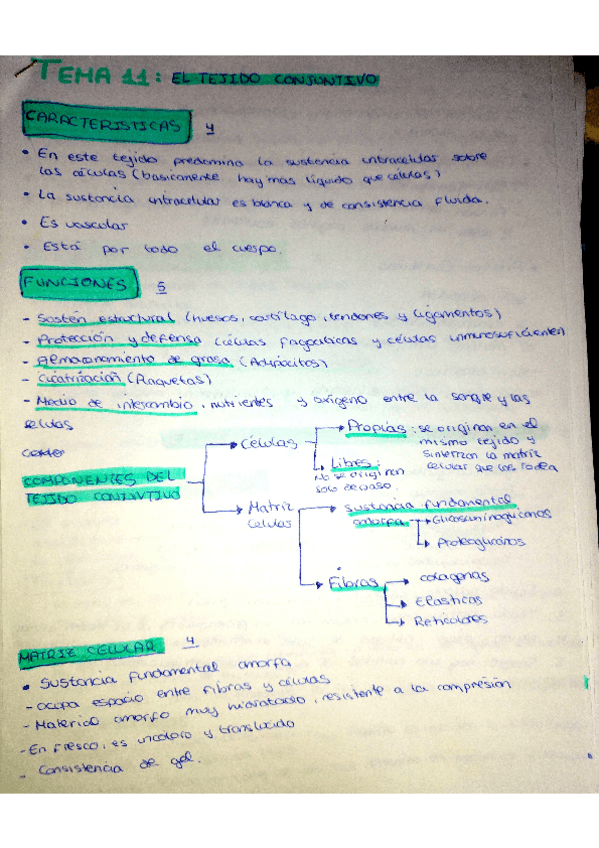 TEMA 11: EL TEJIDO CONJUNTIVO
CARACTERISTICAS 4
• En este tejido predomina la sustancia intracelular sobre
las células (basicamente hay mas líquido que celulas)
• La sustancia intracelular es blanca y de consistencia fluida.
• Es vascular
• Está por todo el cuerpo.
FUNCIONES 5
- Sostén estructural (huesos, cartílago, tendones y ligamentos)
- Protección y defensa (células fagociticas y células inmunosuficientes)
- Almacenamiento de grasa (Adipocitos)
- Cicatrización (Plaquetas)
- Medio de intercambio, nutrientes y oxígeno entre la sangre y las
celulas
COMPONENTES DEL
TEJIDO CONJUNTIVO
Células
Propias: se originan en el
mismo tejido y
sintetizan la matriz
celular que las rodea
Libres:
No se originan
solo de paso.
Matriz
Celular
Sustancia fundamental
amorfa
Glicosaminoglicanos
Proteoglicanos
Fibras
colagenas
Elasticas
Reticulares
MATRIZ CELULAR 4
• Sustancia fundamental amorfa
- ocupa espacio entre fibras y células
- Material amorfo muy hidratado, resistente a la compresión
- En fresco, es incoloro y translucido
- Consistencia de gel.